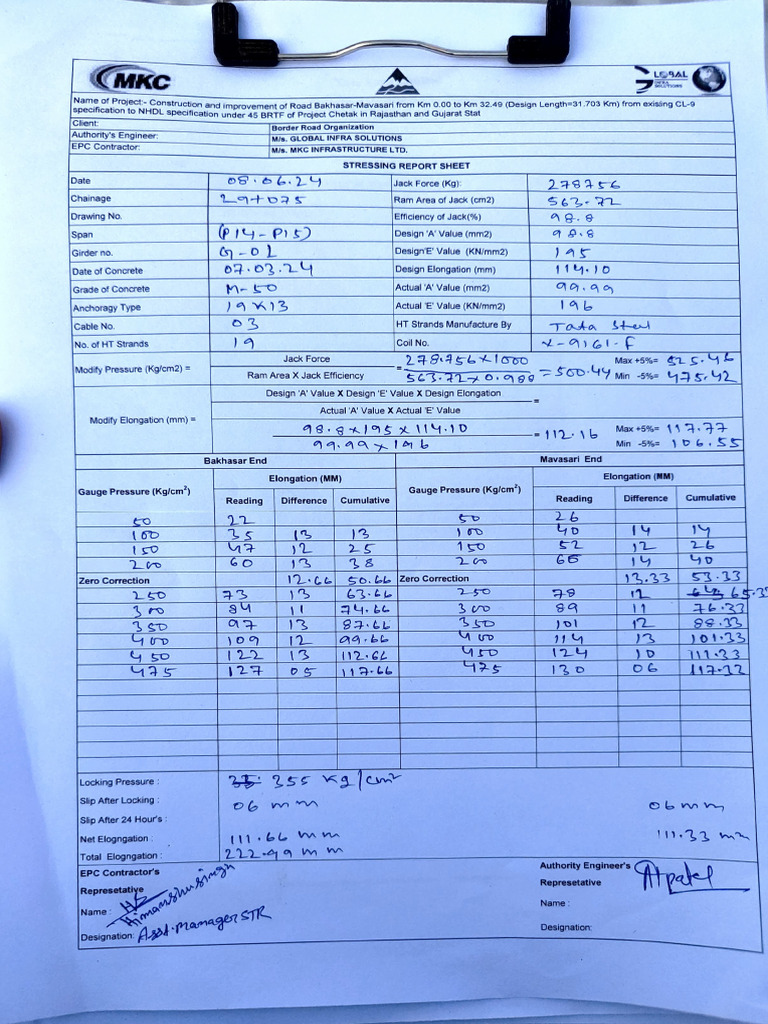 MKC
GLOBAL
INFRA SOLUTIONS
Name of Project:- Construction and improvement of Road Bakhasar-Mavasari from Km 0.00 to Km 32.49 (Design Length=31.703 Km) from existing CL-9
specification to NHDL specification under 45 BRTF of Project Chetak in Rajasthan and Gujarat Stat
Client: Border Road Organization
Authority's Engineer: M/s. GLOBAL INFRA SOLUTIONS
EPC Contractor: M/s. MKC INFRASTRUCTURE LTD.
STRESSING REPORT SHEET
Date 08.06.24 Jack Force (Kg): 278756
Chainage 29+075 Ram Area of Jack (cm2) 563.72
Drawing No. Efficiency of Jack(%) 98.8
Span (P14-P15) Design 'A' Value (mm2) 98.8
Girder no. G-01 Design'E' Value (KN/mm2) 195
Date of Concrete 07.03.24 Design Elongation (mm) 114.10
Grade of Concrete M-50 Actual 'A' Value (mm2) 99.99
Anchoragy Type 19x13 Actual 'E' Value (KN/mm2) 196
Cable No. 03 HT Strands Manufacture By Tata Steel
No. of HT Strands 19 Coil No. X-9161-F
Modify Pressure (Kg/cm2) = Jack Force = 278.756x1000 =500.44 Max +5%= 525.46
Ram Area X Jack Efficiency 563.72x0.988 Min -5%= 475.42
Design 'A' Value X Design 'E' Value X Design Elongation =
Actual 'A' Value X Actual 'E' Value
Modify Elongation (mm) = 98.8x195x114.10 = 112.16 Max +5%= 117.77
99.99x196 Min -5%= 106.55
Bakhasar End Mavasari End
Gauge Pressure (Kg/cm2) Elongation (MM) Gauge Pressure (Kg/cm2) Elongation (MM)
Reading Difference Cumulative Reading Difference Cumulative
50 22 50 26
100 35 13 13 100 40 14 14
150 47 12 25 150 52 12 26
200 60 13 38 200 66 14 40
Zero Correction 12.66 50.66 Zero Correction 13.33 53.33
250 73 13 63.66 250 78 12 65.33
300 84 11 74.66 300 89 11 76.33
350 97 13 87.66 350 101 12 88.33
400 109 12 99.66 400 114 13 101.33
450 122 13 112.66 450 124 10 111.33
475 127 05 117.66 475 130 06 117.32
Locking Pressure : 355 kg/cm2
Slip After Locking : 06 mm 06mm
Slip After 24 Hour's :
Net Elogngation : 111.66 mm 111.33 mm
Total Elogngation : 222.99 mm
EPC Contractor's Authority Engineer's
Represetative Represetative
Name : Himanshu singh Name :
Designation: Asst. manager STR Designation:
Atpatel